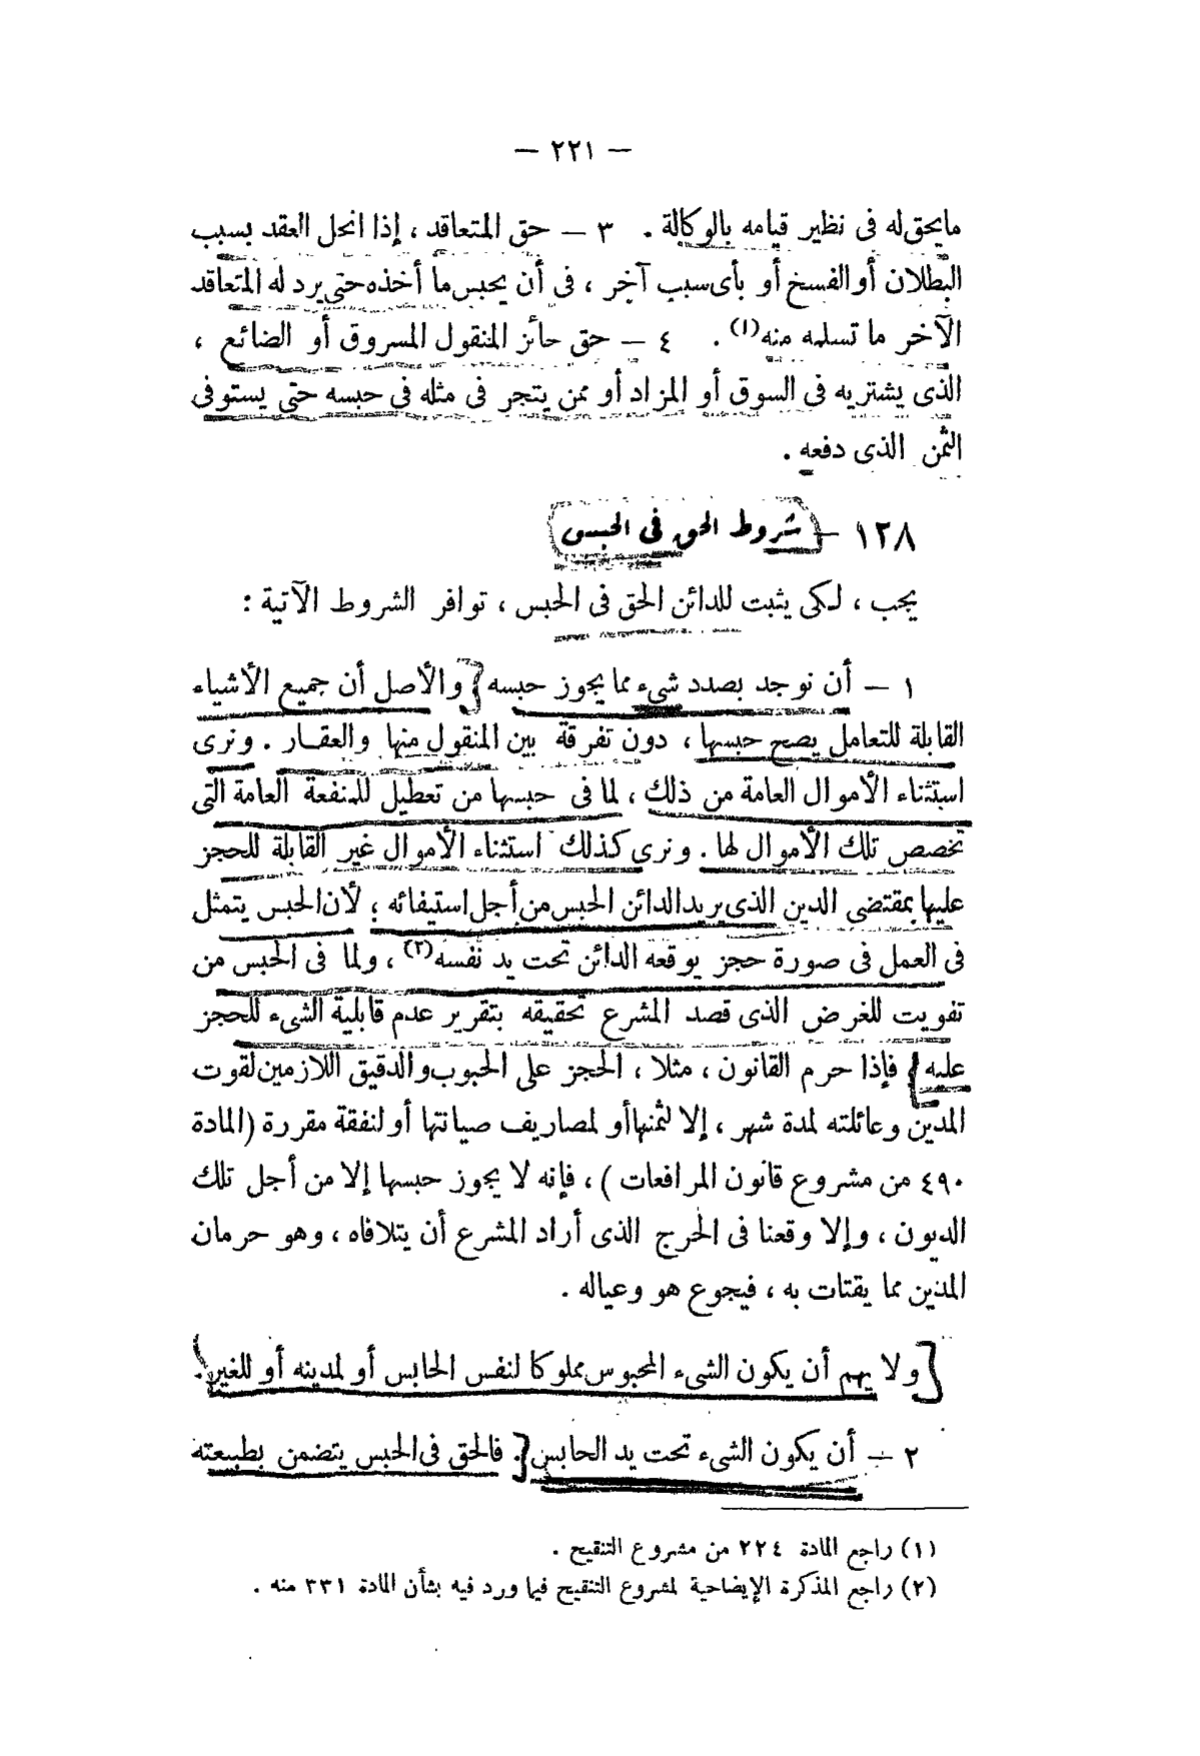 — ٢٢١ —
ما يحق له فى نظير قيامه بالوكالة . ٣ — حق المتعاقد ، إذا انحل العقد بسبب
البطلان أو الفسخ أو بأى سبب آخر ، فى أن يحبس ما أخذه حتى يرد له المتعاقد
الآخر ما تسلمه منه(١) . ٤ — حق حائز المنقول المسروق أو الضائع ،
الذى يشتريه فى السوق أو المزاد أو ممن يتجر فى مثله فى حبسه حتى يستوفى
الثمن الذى دفعه .
١٢٨ — شروط الحق فى الحبس
يجب ، لكى يثبت للدائن الحق فى الحبس ، توافر الشروط الآتية :
١ — أن نوجد بصدد شىء مما يجوز حبسه والأصل أن جميع الأشياء
القابلة للتعامل يصح حبسها ، دون تفرقة بين المنقول منها والعقـار . ونرى
استثناء الأموال العامة من ذلك ، لما فى حبسها من تعطيل للمنفعة العامة التى
تخصص تلك الأموال لها . ونرى كذلك استثناء الأموال غير القابلة للحجز
عليها بمقتضى الدين الذى يريد الدائن الحبس من أجل استيفائه ؛ لأن الحبس يتمثل
فى العمل فى صورة حجز يوقعه الدائن تحت يد نفسه(٢) ، ولما فى الحبس من
تفويت للغرض الذى قصد المشرع تحقيقه بتقرير عدم قابلية الشىء للحجز
عليه فإذا حرم القانون ، مثلا ، الحجز على الحبوب والدقيق اللازمين لقوت
المدين وعائلته لمدة شهر ، إلا لثمنها أو لمصاريف صيانتها أو لنفقة مقررة (المادة
٤٩٠ من مشروع قانون المرافعات ) ، فإنه لا يجوز حبسها إلا من أجل تلك
الديون ، وإلا وقعنا فى الحرج الذى أراد المشرع أن يتلافاه ، وهو حرمان
المدين مما يقتات به ، فيجوع هو وعياله .
ولا يهم أن يكون الشىء المحبوس مملوكا لنفس الحابس أو لمدينه أو للغير .
٢ — أن يكون الشىء تحت يد الحابس . فالحق فى الحبس يتضمن بطبيعته
(١) راجع المادة ٢٢٤ من مشروع التنقيح .
(٢) راجع المذكرة الإيضاحية لمشروع التنقيح فيما ورد فيه بشأن المادة ٣٣١ منه .